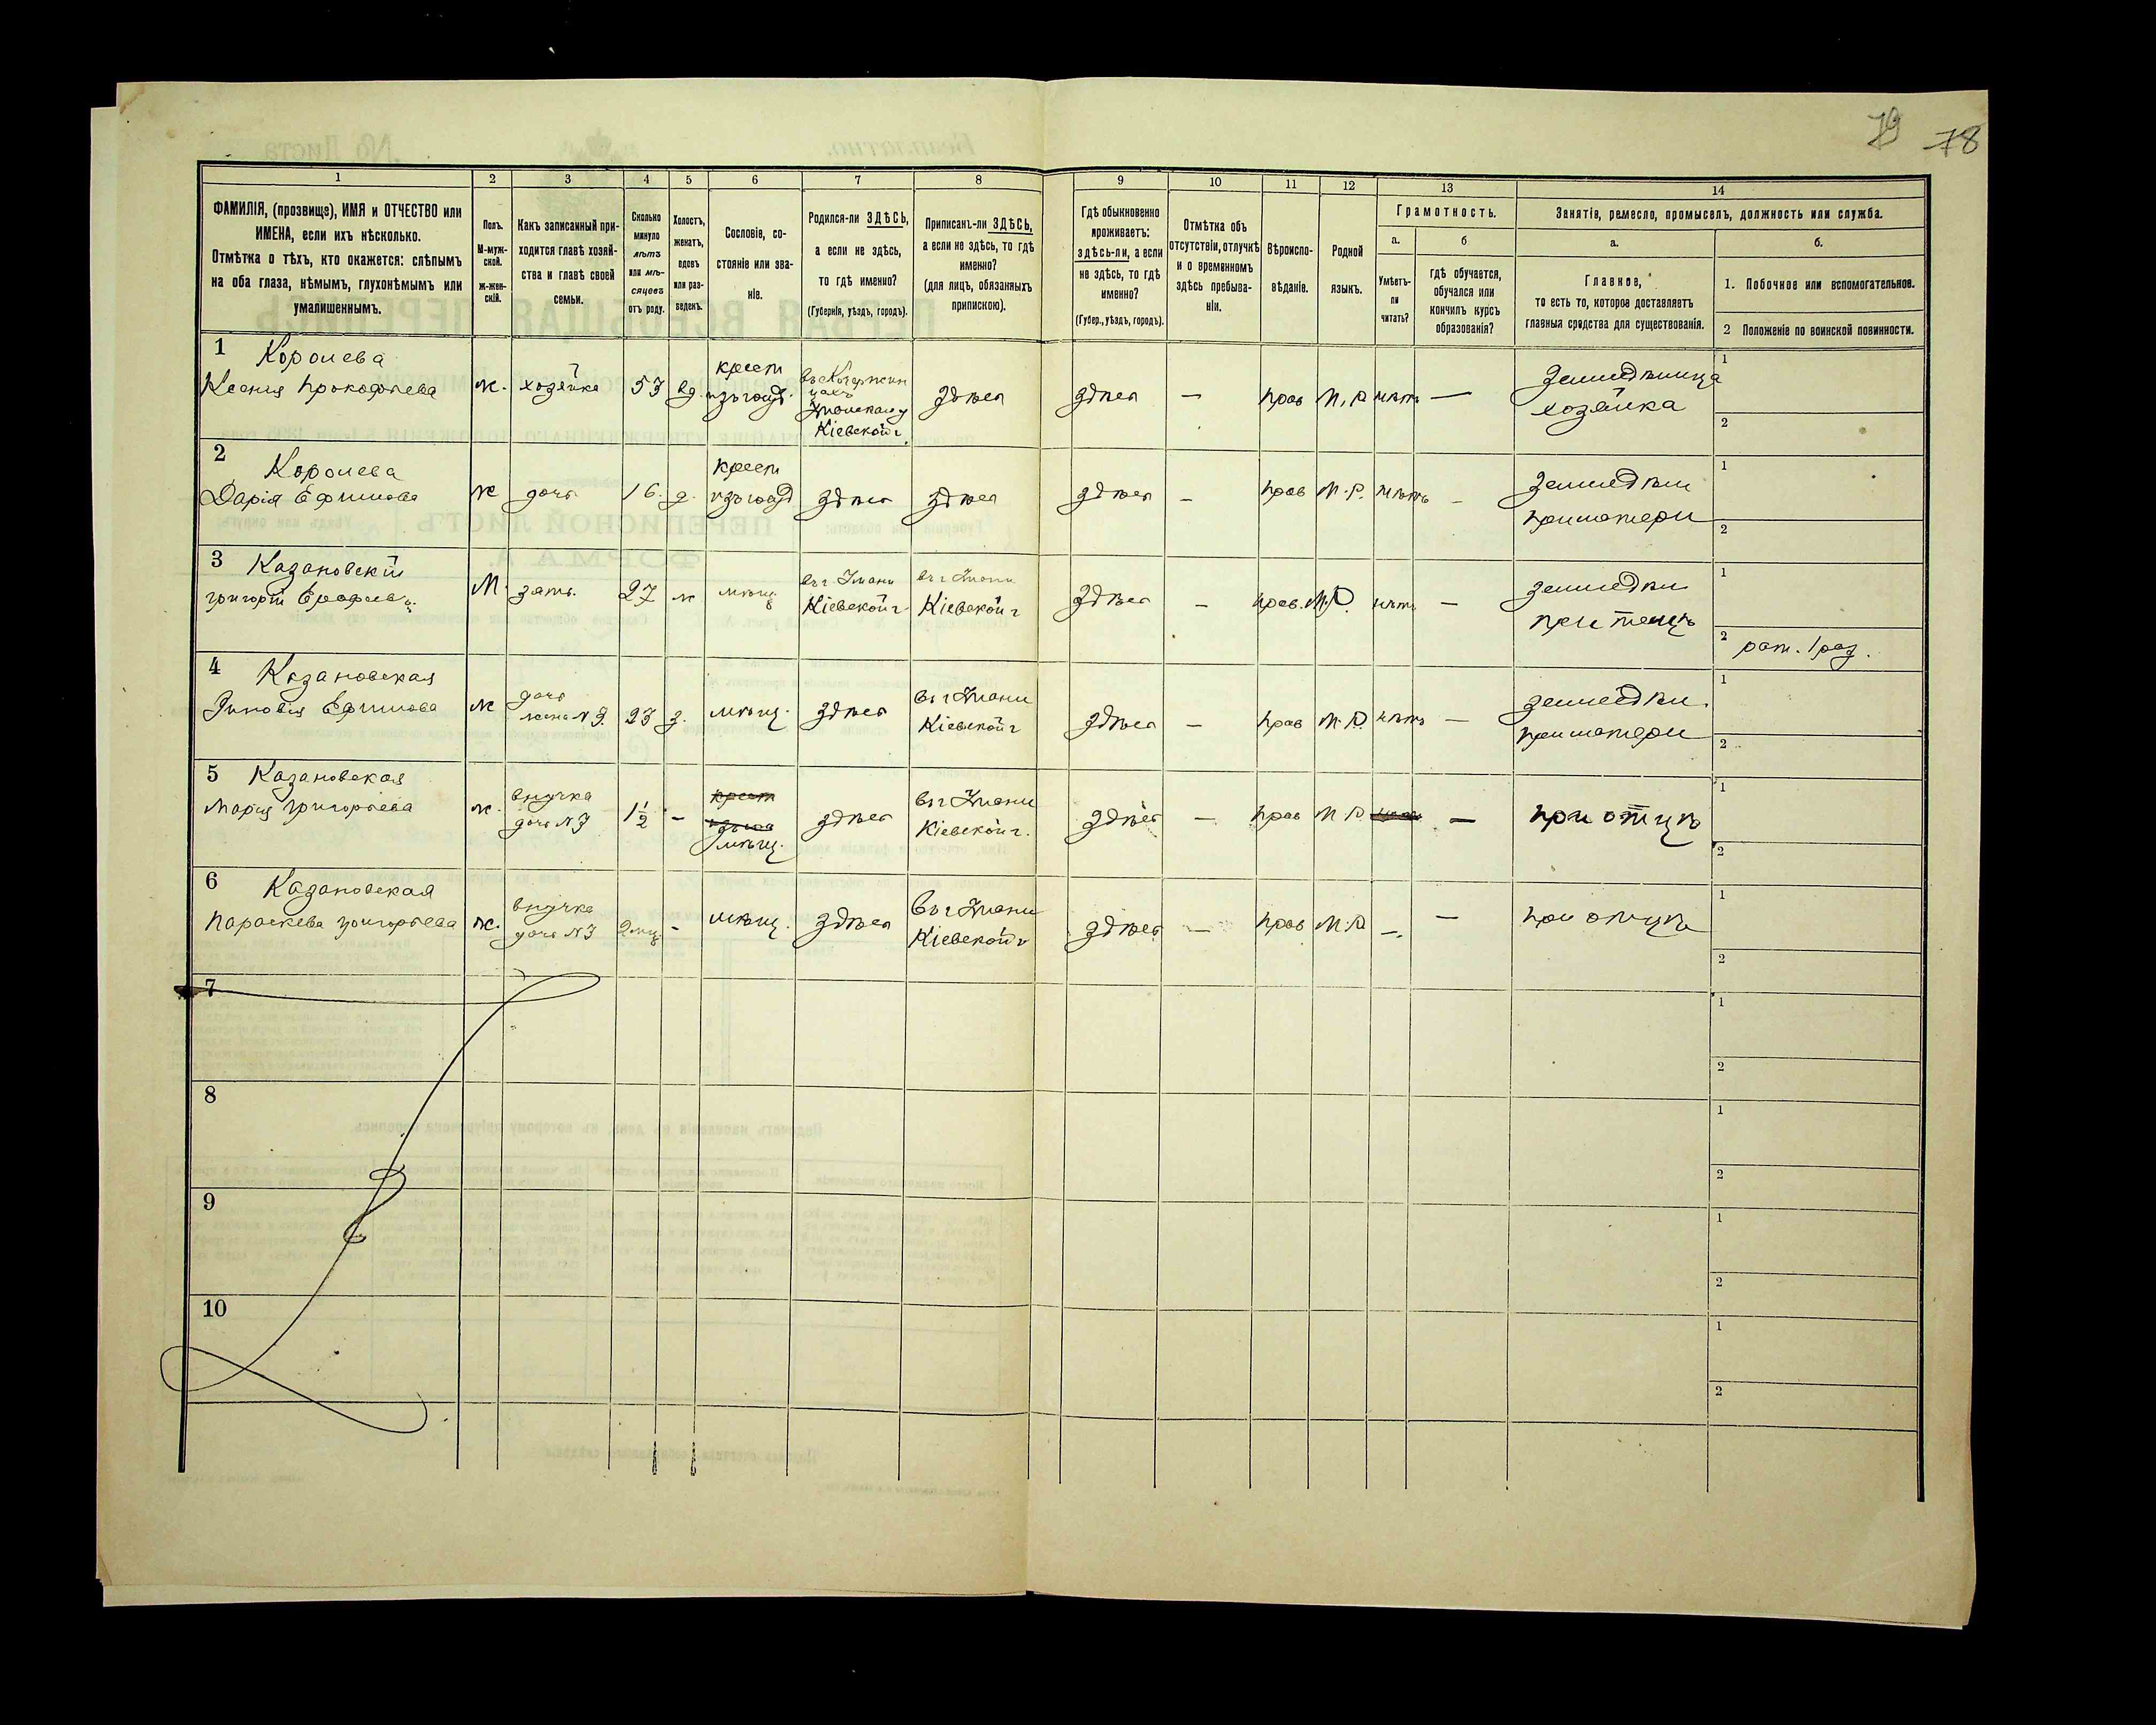 79 78
1 2 3 4 5 6 7 8 9 10 11 12 13 14
ФАМИЛІЯ, (прозвище), ИМЯ и ОТЧЕСТВО или
ИМЕНА, если ихъ нѣсколько.
Отмѣтка о тѣхъ, кто окажется: слѣпымъ
на оба глаза, нѣмымъ, глухонѣмымъ или
умалишеннымъ.
Полъ.
М-муж-
ской.
Ж-жен-
скій.
Какъ записанный при-
ходится главѣ хозяй-
ства и главѣ своей
семьи.
Сколько
минуло
лѣтъ
или мѣ-
сяцевъ
отъ роду.
Холостъ,
женатъ,
вдовъ
или раз-
веденъ.
Сословіе, со-
стояніе или зва-
ніе.
Родился-ли ЗДѢСЬ,
а если не здѣсь,
то гдѣ именно?
(Губернія, уѣздъ, городъ).
Приписанъ-ли ЗДѢСЬ,
а если не здѣсь, то гдѣ
именно?
(для лицъ, обязанныхъ
припискою).
Гдѣ обыкновенно
проживаетъ:
здѣсь-ли, а если
не здѣсь, то гдѣ
именно?
(Губер., уѣздъ, городъ).
Отмѣтка объ
отсутствіи, отлучкѣ
и о временномъ
здѣсь пребыва-
ніи.
Вѣроиспо-
вѣданіе.
Родной
языкъ.
Грамотность.
а.
Умѣетъ-
ли
читать?
б
гдѣ обучается,
обучался или
кончилъ курсъ
образованія?
Занятія, ремесло, промыселъ, должность или служба.
а.
Главное,
то есть то, которое доставляетъ
главныя средства для существованія.
б.
1. Побочное или вспомогательное.
2 Положеніе по воинской повинности.
1 Королева
Ксенія Прокофьева
ж.
хозяйка
57
вд.
крест
Уманскаго у
Кіевской г.
здѣсь
здѣсь
—
прав
М.Р.
нѣтъ
—
хозяйка
1
2
2 Королева
Дарія Ефимова
ж
дочь
16.
д.
крест
здѣсь
здѣсь
здѣсь
—
прав
М.Р.
нѣтъ
—
земледѣл
при матери
1
2
3 Казановскій
Григорій
М.
зять.
27
ж
мѣщ
въ г Умани
Кіевской г
въ г Умани
Кіевской г
здѣсь
—
прав.
М.Р.
нѣтъ
—
земледѣл
при тещѣ
1
2 рат. 1 раз.
4 Казановская
Зиновія Ефимова
ж
дочь
жена N 3.
23
з.
мѣщ.
здѣсь
въ г Умани
Кіевской г
здѣсь
—
прав
М.Р.
нѣтъ
—
земледѣл.
при матери
1
2
5 Казановская
Марія Григорьева
ж.
внучка
дочь N 3
1 1/2
—
крест
мѣщ.
здѣсь
въ г Умани
Кіевской г.
здѣсь
—
прав
М Р
—
при отцѣ
1
2
6 Казановская
Параскева Григорьева
ж.
внучка
дочь N 3
2 мц
—
мѣщ.
здѣсь
въ г Умани
Кіевской г
здѣсь
—
прав
М.Р
—
—
при отцѣ
1
2
7
1
2
8
1
2
9
1
2
10
1
2